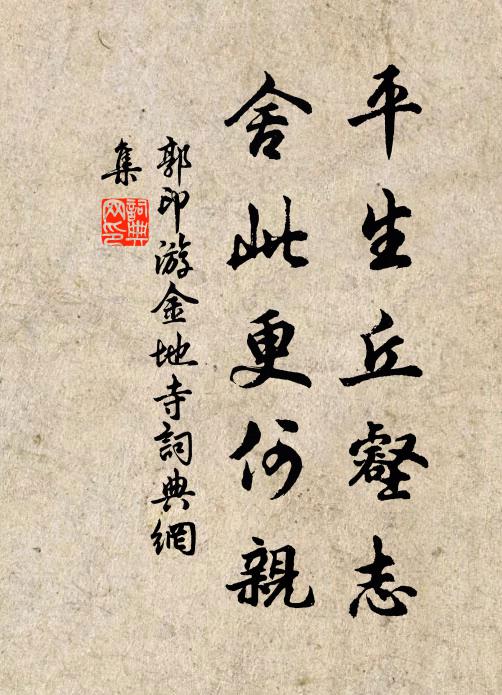 平生丘壑志
舍此更何親
郭印游金地寺詞典網
集
詞典
网印